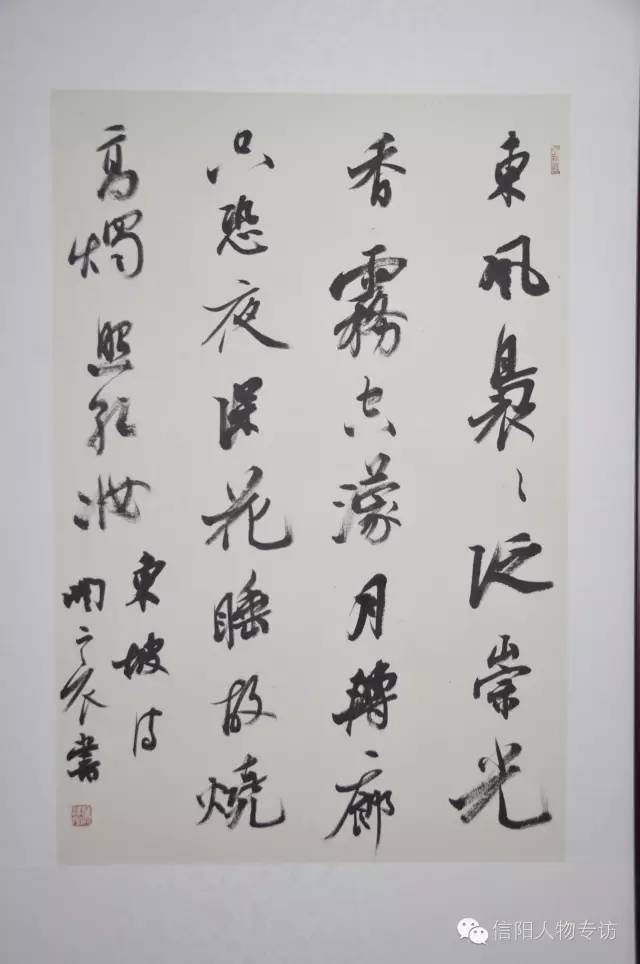 東風裊〻泛崇光
香霧空濛月轉廊
只恐夜深花睡故燒
高燭照紅妝
東坡诗
書
信阳人物专访